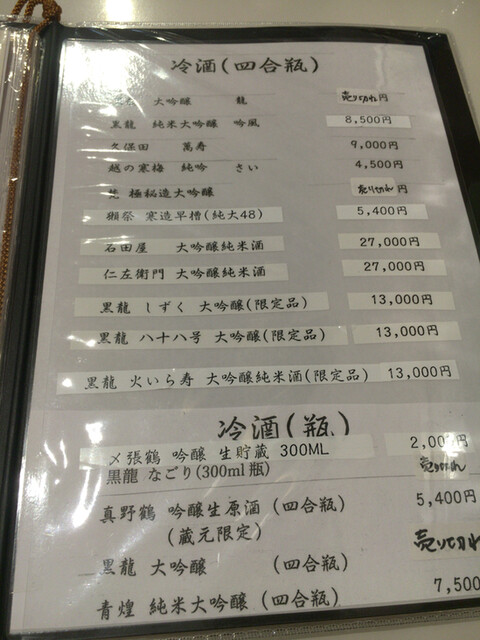 冷酒(四合瓶)
大吟醸 龍 売り切れ円
黒龍 純米大吟醸 吟風 8,500円
久保田 萬寿 9,000円
越の寒梅 純吟 さい 4,500円
梵 極秘造大吟醸 売り切れ円
獺祭 寒造早槽(純大48) 5,400円
石田屋 大吟醸純米酒 27,000円
仁左衛門 大吟醸純米酒 27,000円
黒龍 しずく 大吟醸(限定品) 13,000円
黒龍 八十八号 大吟醸(限定品) 13,000円
黒龍 火いら寿 大吟醸純米酒(限定品) 13,000円
冷酒(瓶)
〆張鶴 吟醸 生貯蔵 300ML 2,000円
黒龍 なごり(300ml瓶) 売り切れ
真野鶴 吟醸生原酒 (四合瓶) 5,400円
(蔵元限定)
黒龍 大吟醸 (四合瓶) 売り切れ
青煌 純米大吟醸 (四合瓶) 7,500